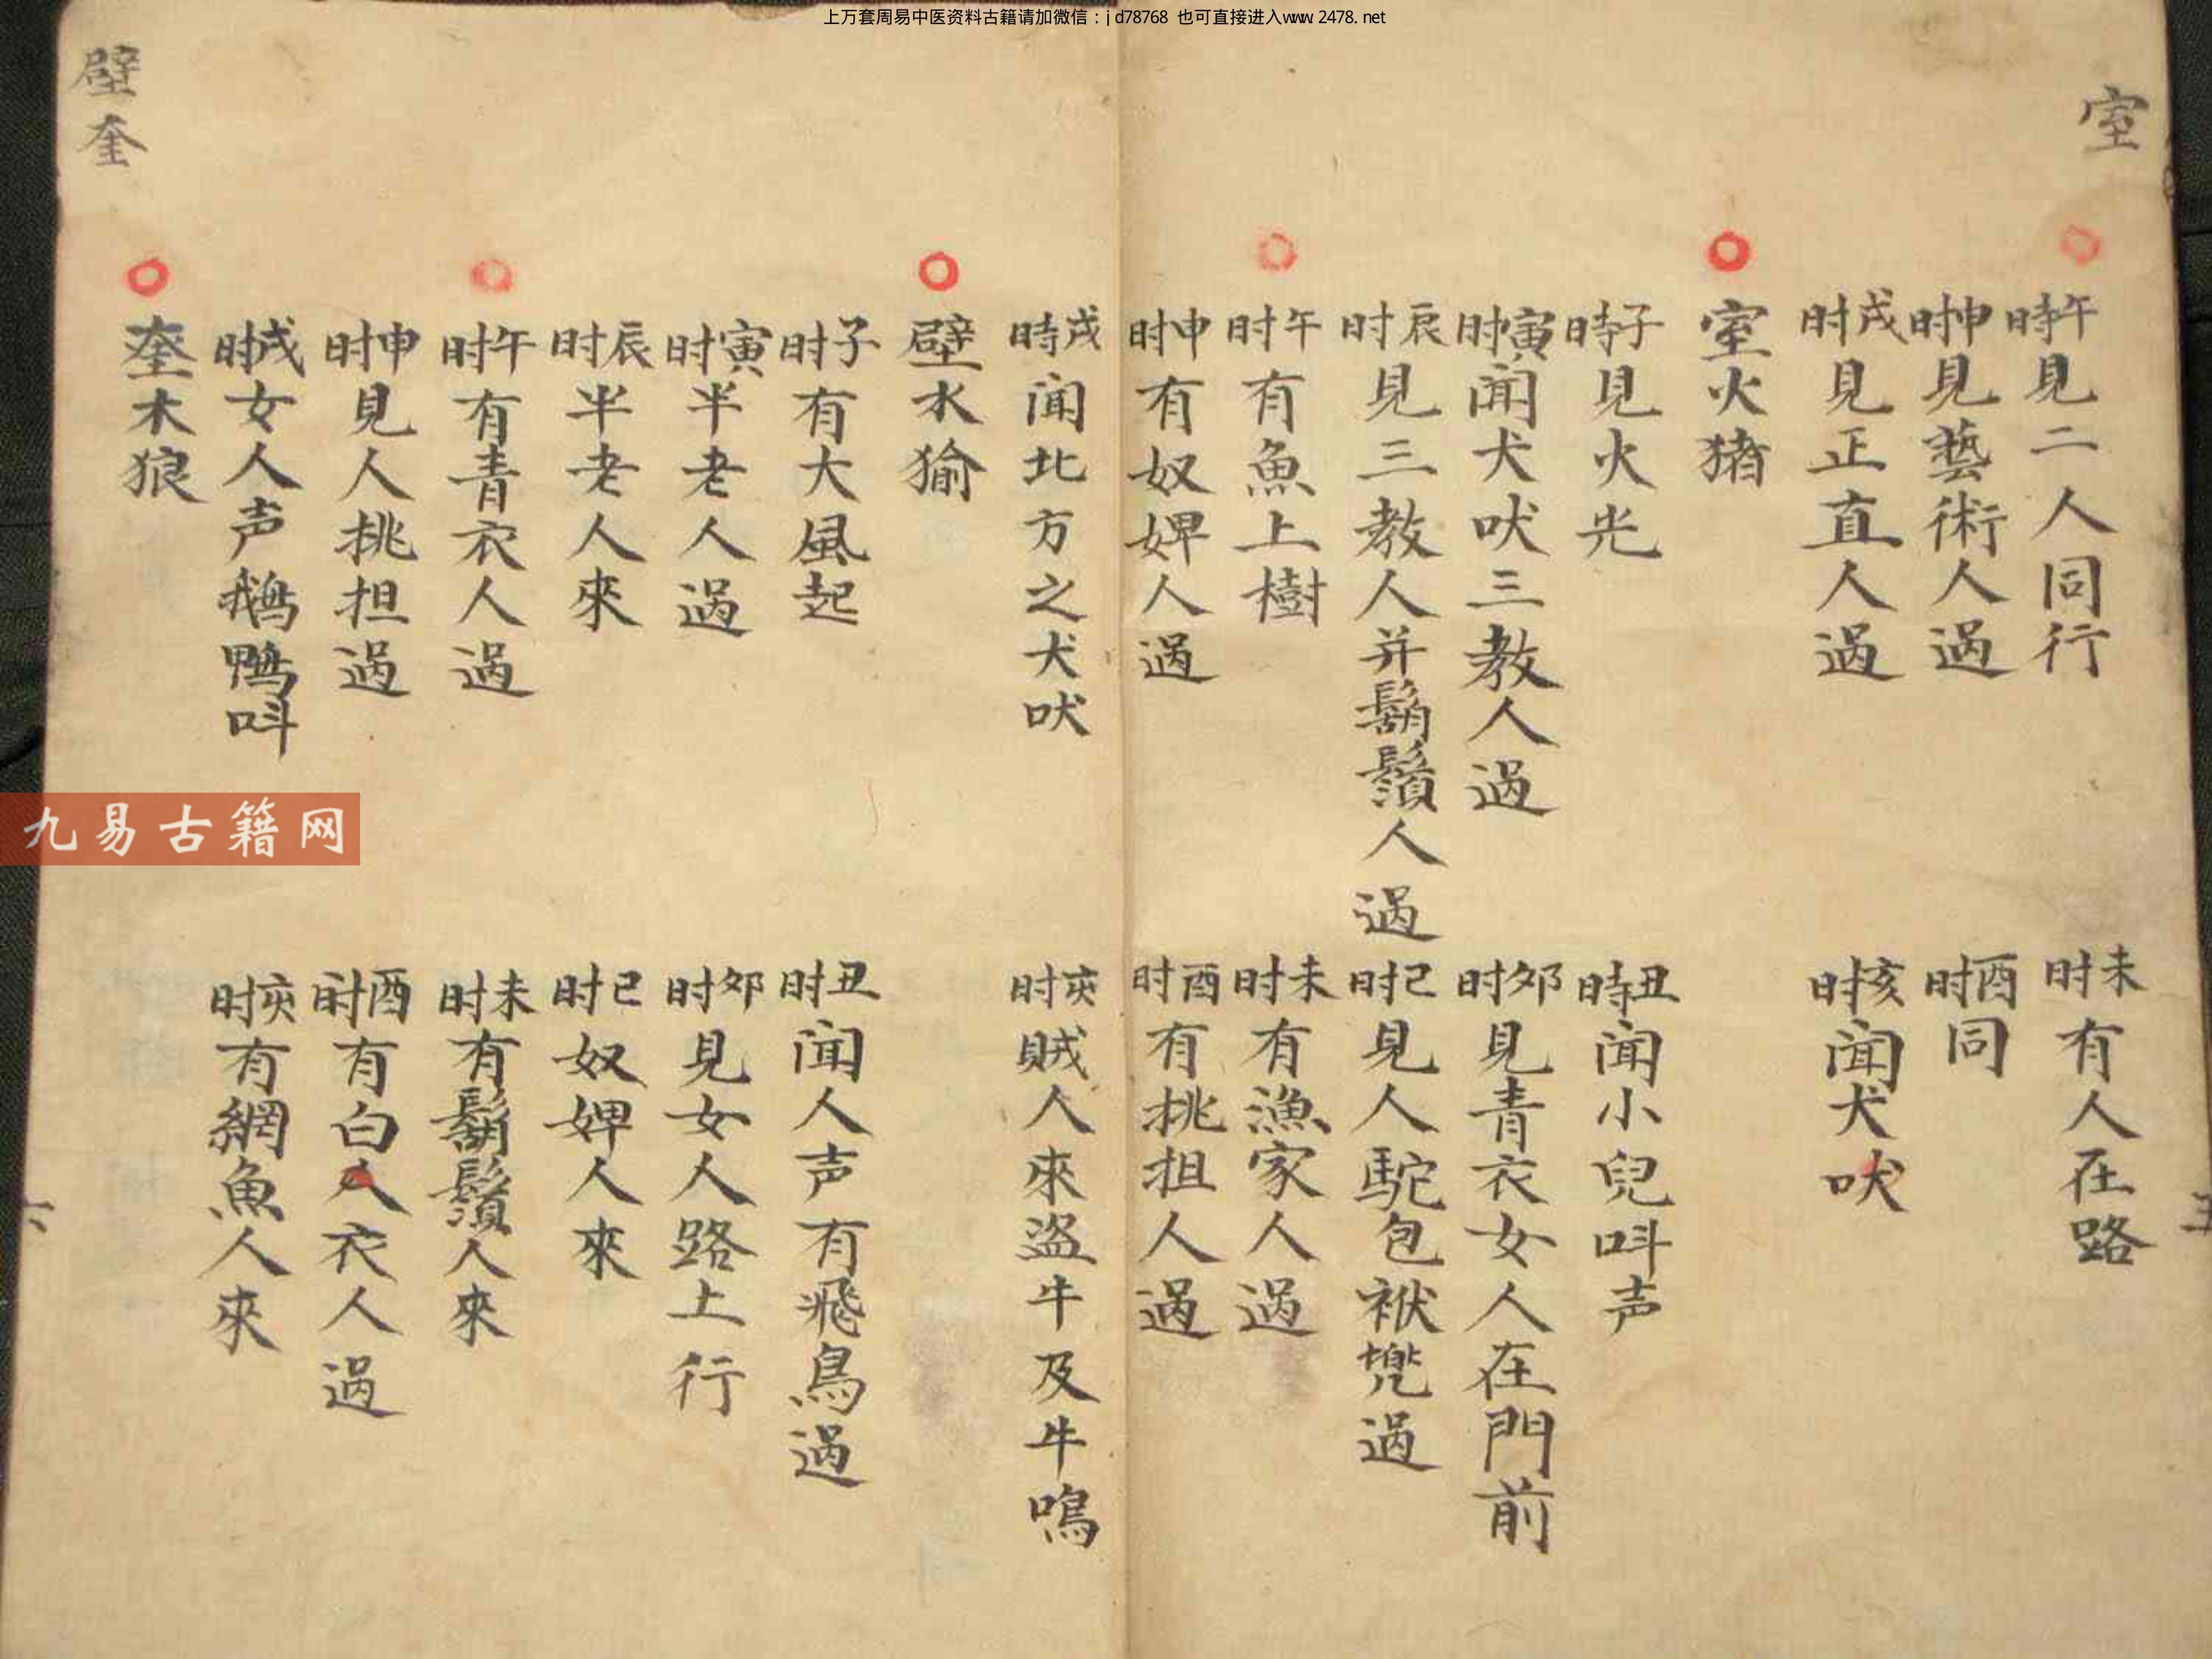 上万套周易中医资料古籍请加微信：jd78768 也可直接进入www.2478.net
室
午時見二人同行
未时有人在路
申时見藝術人過
酉时同
戌时見正直人過
亥时闻犬吠
室火猪
子時見火光
丑時闻小兒呌声
寅时闻犬吠三教人過
夘时見青衣女人在門前
辰时見三教人并鬍鬚人過
已时見人駝包袱兠過
午时有魚上樹
未时有漁家人過
申时有奴婢人過
酉时有挑担人過
戌時闻北方之犬吠
亥时賊人來盗牛及牛鳴
壁水㺄
子时有大風起
丑时闻人声有飛鳥過
寅时半老人過
夘时見女人路上行
辰时半老人來
已时奴婢人來
午时有青衣人過
未时有鬍鬚人來
申时見人挑担過
酉时有白人衣人過
戌时女人声鵝鴨呌
亥时有網魚人來
奎木狼
壁奎
六
九易古籍网